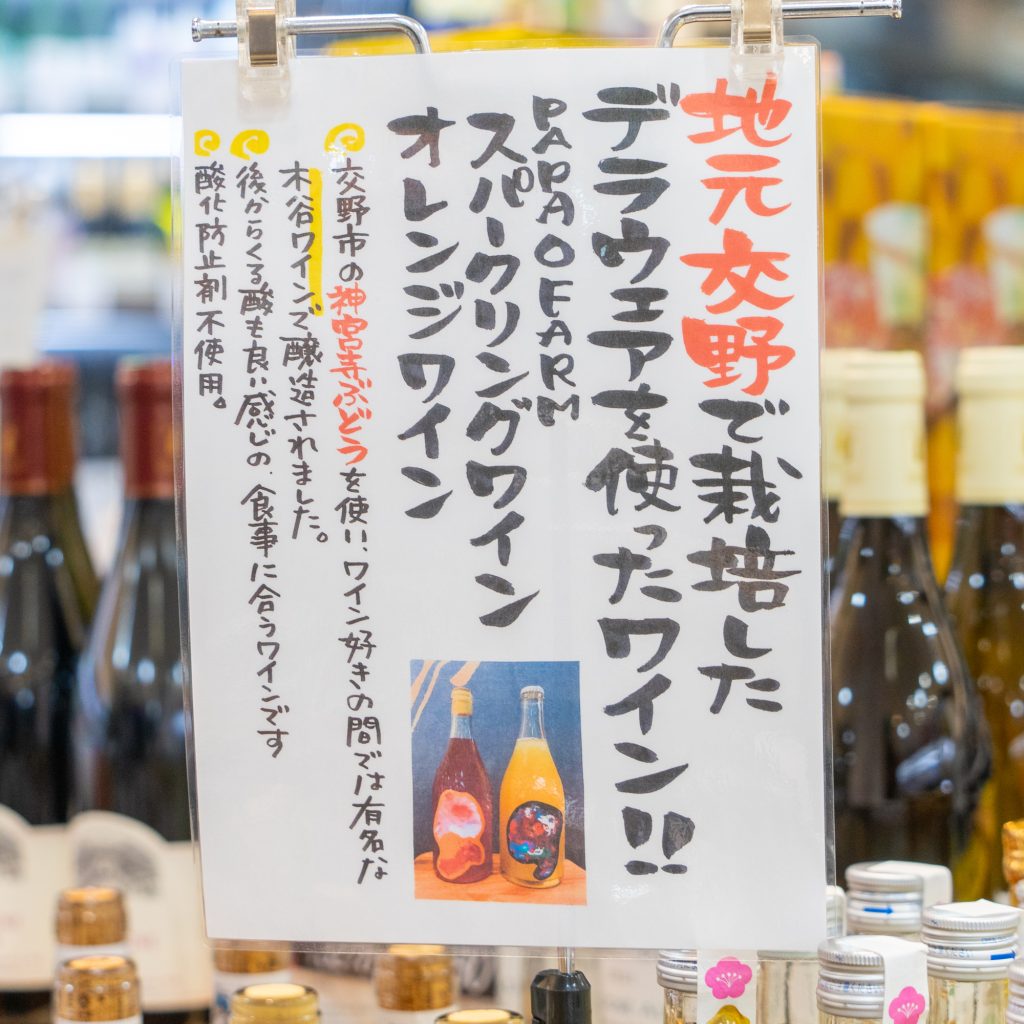 地元交野で栽培した
デラウェアを使ったワイン!!
PAPAOFARM
スパークリングワイン
オレンジワイン
交野市の神宮寺ぶどうを使い、ワイン好きの間では有名な
木谷ワインで醸造されました。
後からくる酸も良い感じの、食事に合うワインです
酸化防止剤不使用。